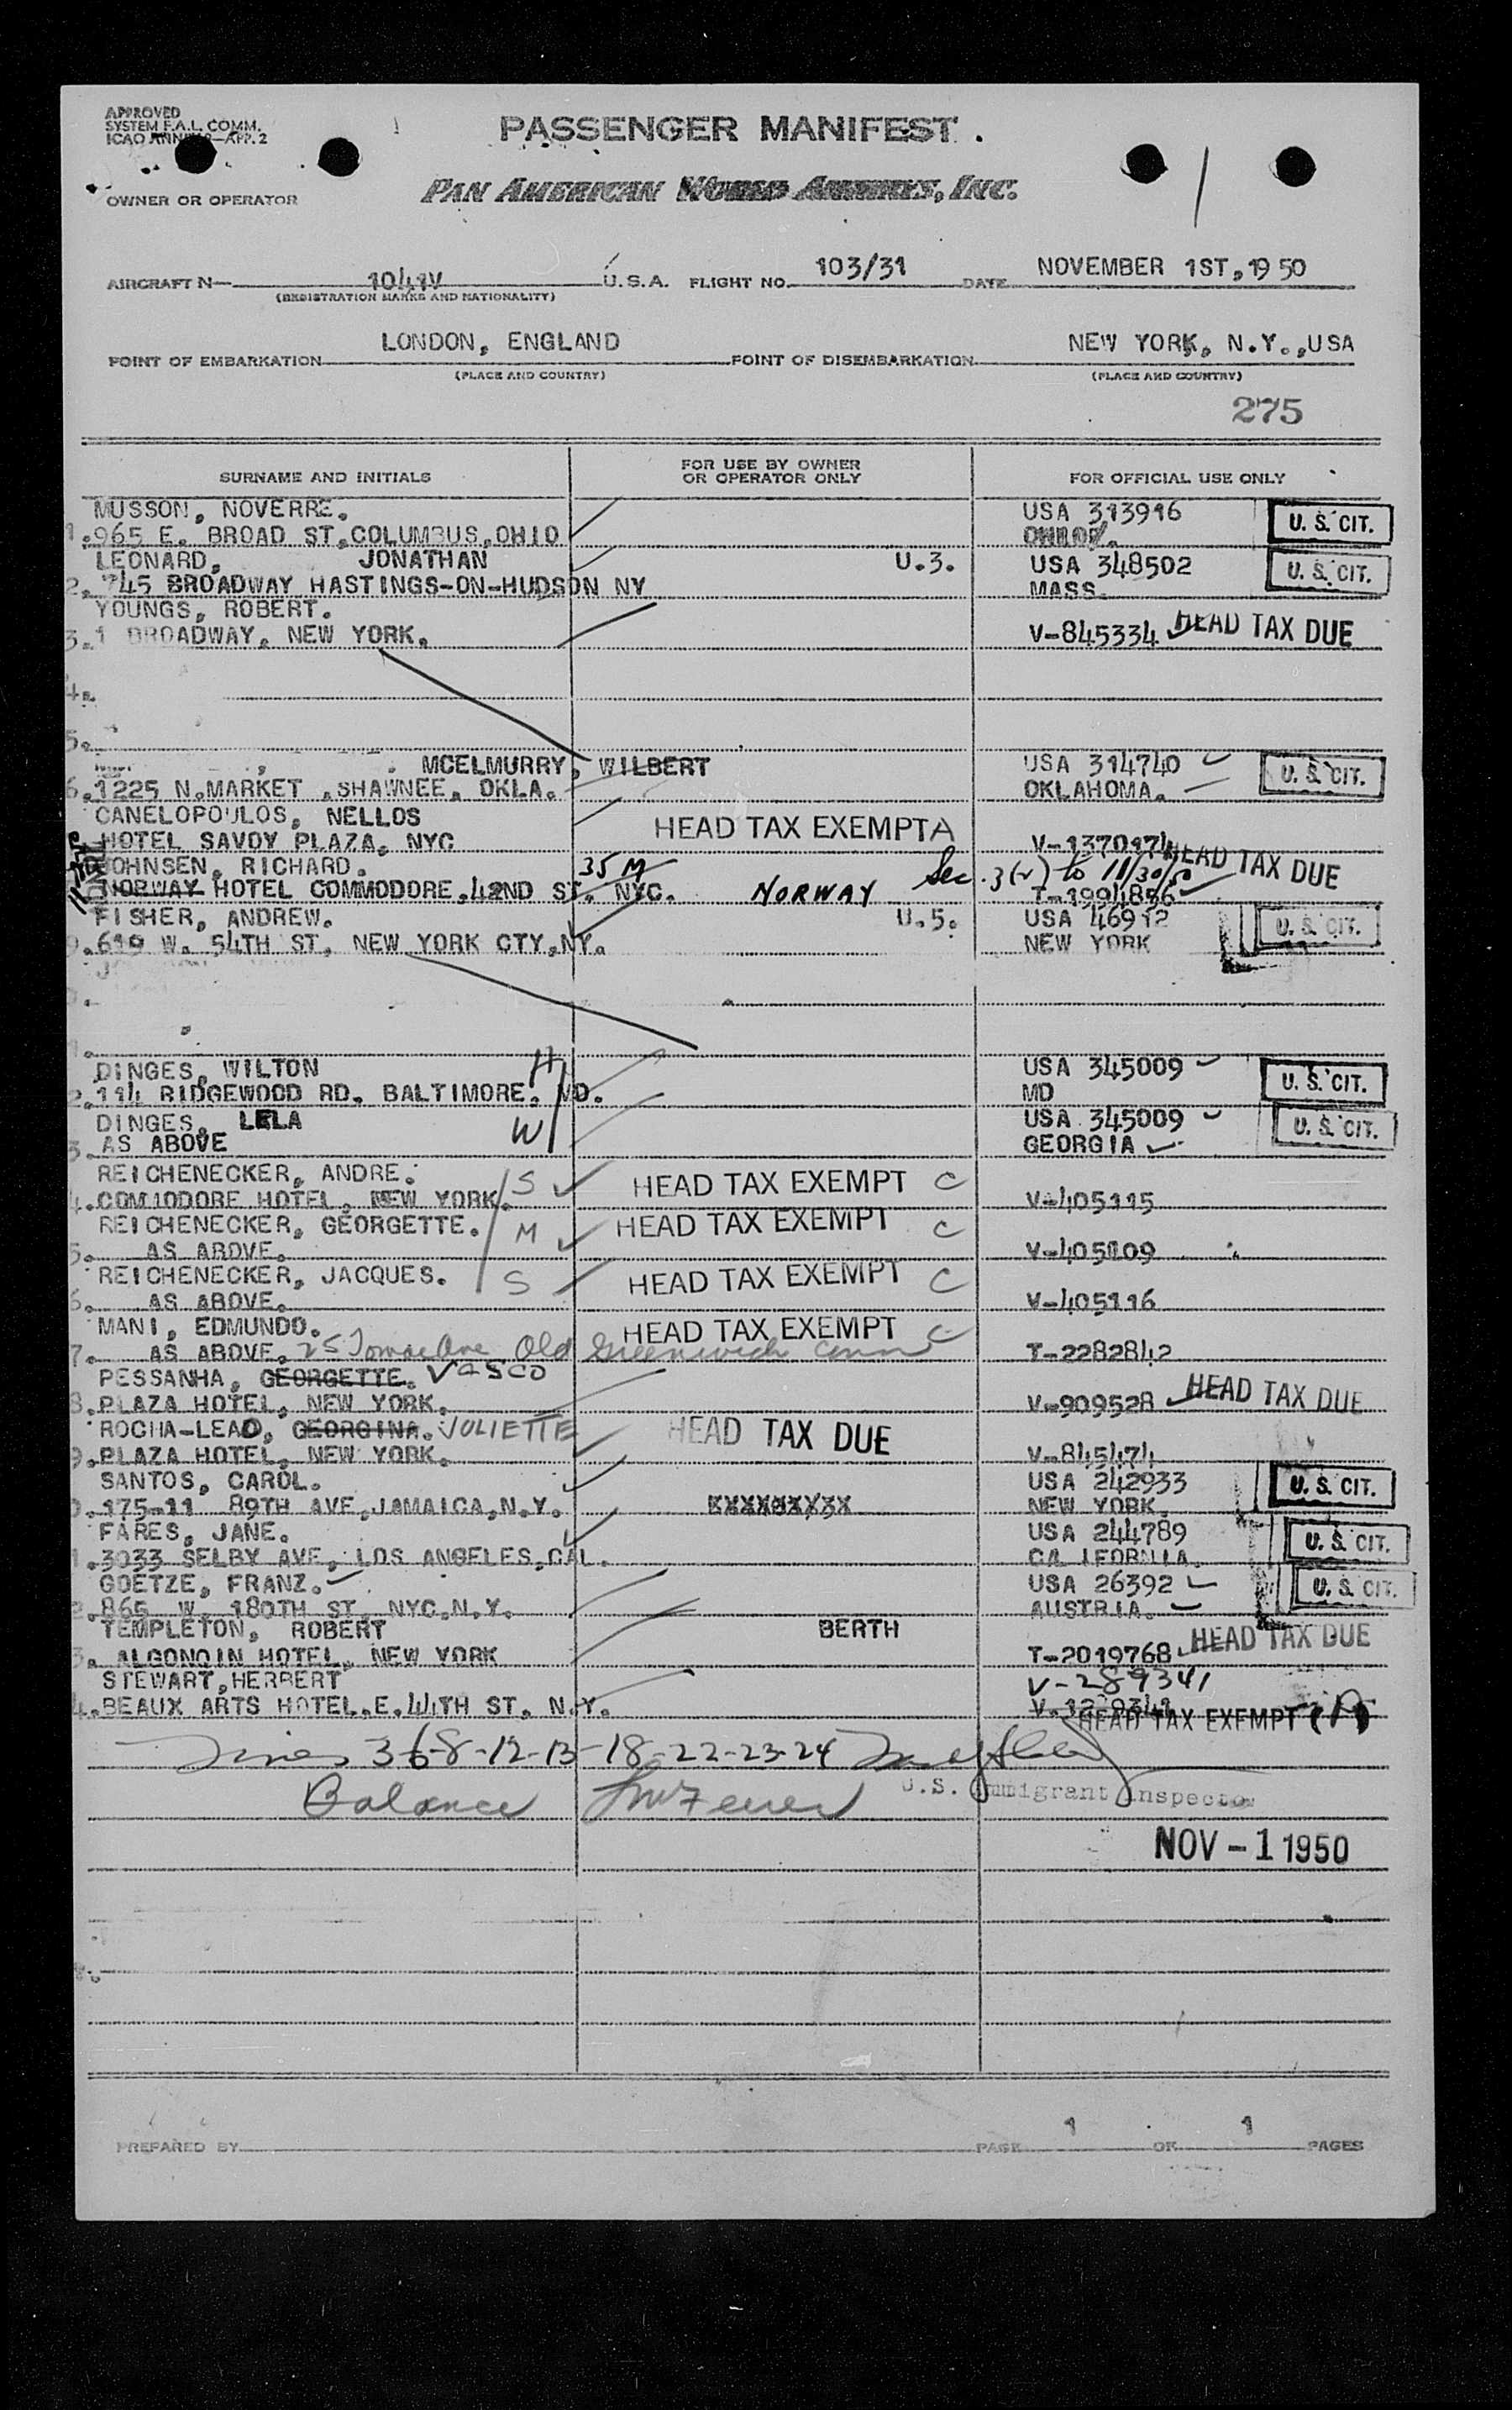 APPROVED
SYSTEM F.A.L. COMM.
ICAO ANNEX 9-APP. 2
PASSENGER MANIFEST.
OWNER OR OPERATOR
PAN AMERICAN WORLD AIRWAYS, INC.
AIRCRAFT N- 1041V U.S.A. FLIGHT NO. 103/31 DATE NOVEMBER 1ST, 1950
(REGISTRATION MARKS AND NATIONALITY)
POINT OF EMBARKATION LONDON, ENGLAND POINT OF DISEMBARKATION NEW YORK, N.Y.,USA
(PLACE AND COUNTRY) (PLACE AND COUNTRY)
275
SURNAME AND INITIALS FOR USE BY OWNER OR OPERATOR ONLY FOR OFFICIAL USE ONLY
MUSSON, NOVERRE. USA 313916 U. S. CIT.
1. 965 E. BROAD ST, COLUMBUS, OHIO
LEONARD, JONATHAN U.S. USA 348502 U. S. CIT.
2. 745 BROADWAY HASTINGS-ON-HUDSON NY MASS.
YOUNGS, ROBERT.
3. 1 BROADWAY, NEW YORK. V-845334 HEAD TAX DUE
4.
5.
MCELMURRY, WILBERT USA 314740 U. S. CIT.
6. 1225 N.MARKET , SHAWNEE, OKLA. OKLAHOMA.
CANELOPOULOS, NELLOS HEAD TAX EXEMPT A
HOTEL SAVOY PLAZA, NYC V-137017 HEAD TAX DUE
JOHNSEN, RICHARD. 35 M Sec. 3(2) to 11/30/50
NORWAY HOTEL COMMODORE, 42ND ST. NYC. NORWAY T-1994856
FISHER, ANDREW. U.S. USA 46912 U. S. CIT.
9. 619 W. 54TH ST, NEW YORK CTY, NY. NEW YORK
DINGES, WILTON H USA 345009 U. S. CIT.
2. 114 RIDGEWOOD RD, BALTIMORE, MD. MD
DINGES, LELA W USA 345009 U. S. CIT.
3. AS ABOVE GEORGIA
REICHENECKER, ANDRE. S HEAD TAX EXEMPT C
4. COMMODORE HOTEL, NEW YORK. V-405115
REICHENECKER, GEORGETTE. M HEAD TAX EXEMPT C
5. AS ABOVE. V-405109
REICHENECKER, JACQUES. S HEAD TAX EXEMPT C
6. AS ABOVE. V-405116
MANI, EDMUNDO. HEAD TAX EXEMPT C
7. AS ABOVE, 25 Tomac Ave Old Greenwich Conn T-2282842
PESSANHA, GEORGETTE. VASCO
8. PLAZA HOTEL, NEW YORK. V-909528 HEAD TAX DUE
ROCHA-LEAO, GEORGINA. JULIETTE HEAD TAX DUE
9. PLAZA HOTEL, NEW YORK. V-845474
SANTOS, CAROL. USA 242933 U. S. CIT.
175-11 89TH AVE, JAMAICA, N.Y. NEW YORK.
FARES, JANE. USA 244789 U. S. CIT.
1. 3033 SELBY AVE, LOS ANGELES, CAL. CALIFORNIA.
GOETZE, FRANZ. USA 26392 U. S. CIT.
2. 865 W. 180TH ST, NYC.N.Y. AUSTRIA.
TEMPLETON, ROBERT BERTH
3. ALGONQIN HOTEL, NEW YORK T-2019768 HEAD TAX DUE
STEWART, HERBERT V-289341
4. BEAUX ARTS HOTEL.E.44TH ST, N.Y. HEAD TAX EXEMPT
Lines 3-6-8-12-13-18-22-23-24
Balance
U.S. Immigrant Inspector
NOV - 1 1950
PREPARED BY PAGE 1 OF 1 PAGES